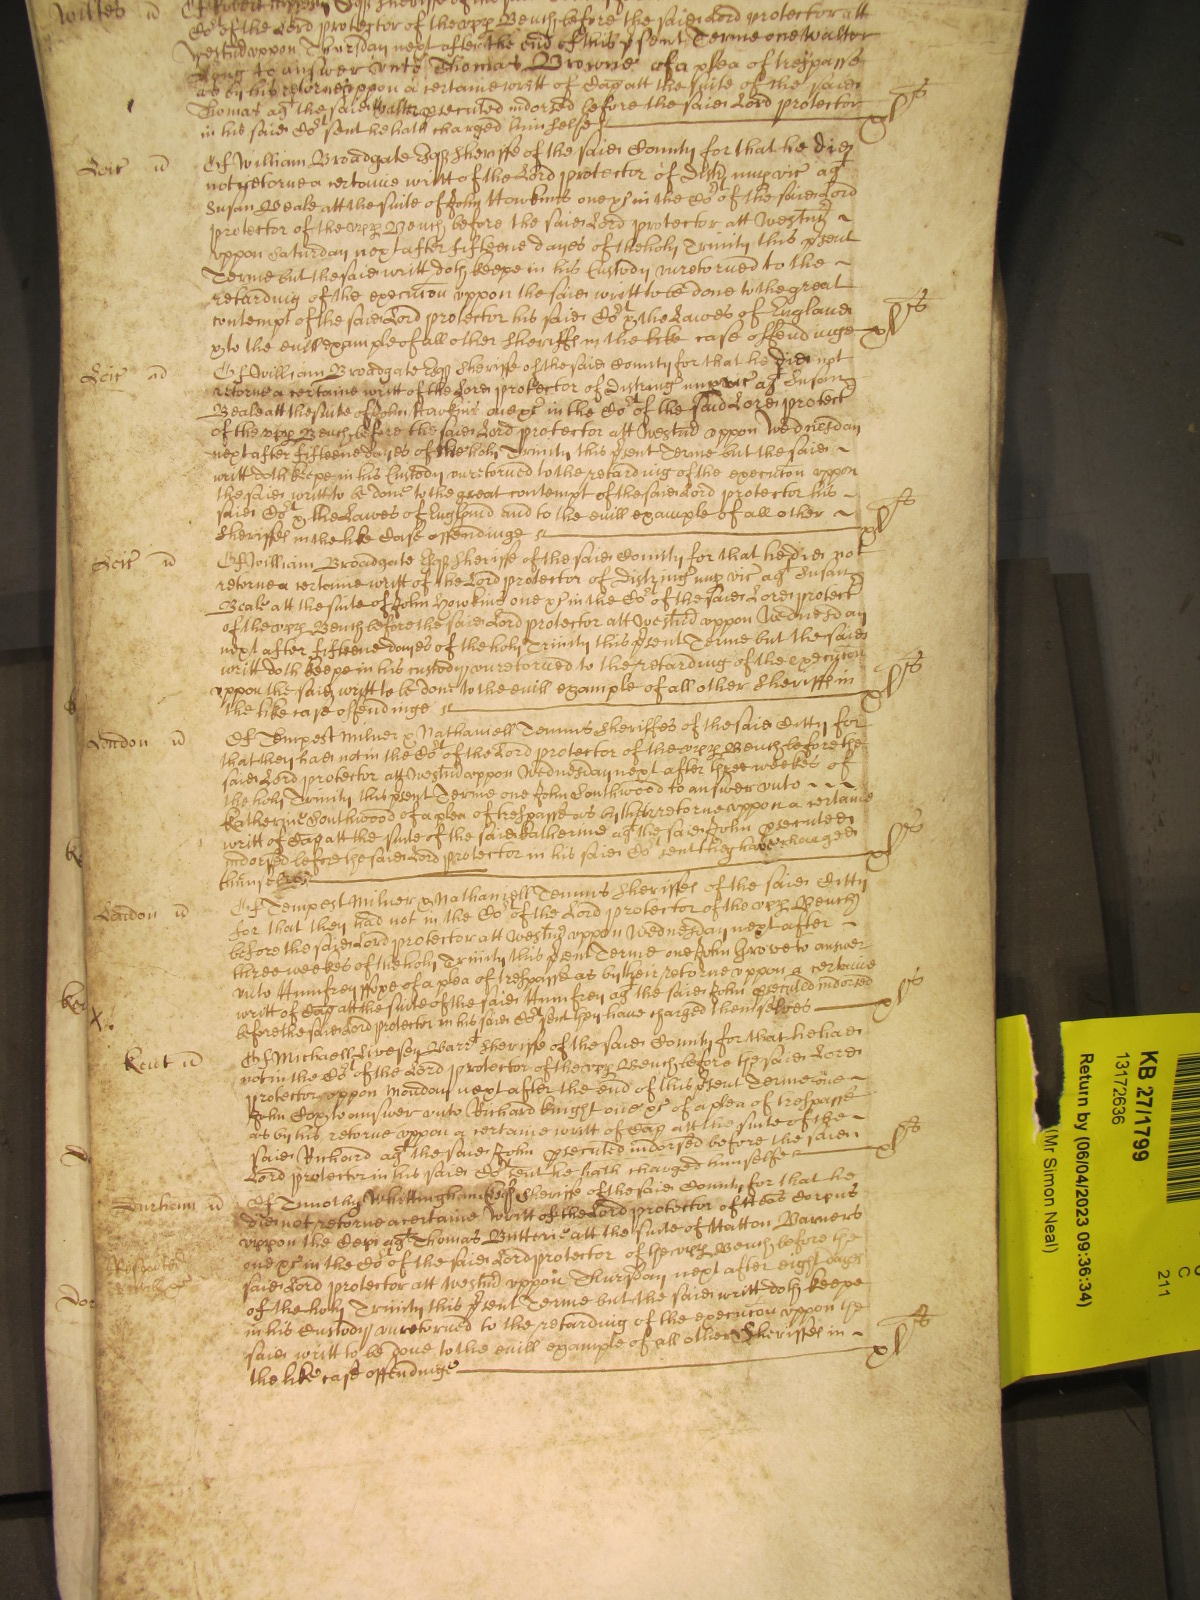 Willes
Cort of the Lord protector of the upp Bench before the said Lord protector att
Westmr uppon Thursday next after the end of this psent Terme one Walter
to answer unto Thomas Browne of a plea of trespasse
as by his retorne uppon a certaine writt of Cap att the suite of the said
Thomas agt the said Walter executed indorsed before the said Lord protector
in his said Cort sent he hath charged himselfe
Leic
Of William Broadgate Esqr Sheriffe of the said County for that he did
not retorne a certaine writt of the Lord protector of Distr nup vic agt
Susan Beale att the suite of John Hawkins one &c in the Cort of the said Lord
protector of the upp Bench before the said Lord protector att Westmr
uppon Saturday next after fifteene dayes of the holy Trinity this psent
Terme but the said writt doth keepe in his Custody unretorned to the
retarding of the execucon uppon the said writt to be done to the great
contempt of the said Lord protector his said Cort & the Lawes of England
& to the evill example of all other Sheriffes in the like case offendinge
Leic
Of William Broadgate Esqr Sheriffe of the said County for that he did not
retorne a certaine writt of the Lord protector of Distring nup vic agt Susan
Beale att the suite of John Hawkins one &c in the Cort of the said Lord protect
of the upp Bench before the said Lord protector att Westmd uppon Wednesday
next after fifteene dayes of the holy Trinity this psent Terme but the said
writt doth keepe in his Custody unretorned to the retarding of the execucon uppon
the said writt to be done to the great contempt of the said Lord protector his
said Cort & the Lawes of England and to the evill example of all other
Sheriffes in the like Case offendinge
Leic
Of William Broadgate Esqr Sheriffe of the said County for that he did not
retorne a certaine writt of the Lord protector of Distring nup vic agt Susan
Beale att the suite of John Hawkins one &c in the Cort of the said Lord protect
of the upp Bench before the said Lord protector att Westmd uppon Wednesday
next after fifteene dayes of the holy Trinity this psent Terme but the said
writt doth keepe in his custody unretorned to the retarding of the execucon
uppon the said writt to be done to the evill example of all other Sheriffes in
the like case offendinge
London
Of Tempest Milner & Nathaniell Temms Sheriffes of the said Citty for
that they had not in the Cort of the Lord protector of the upp Bench before the
said Lord protector att Westmd uppon Wednesday next after three weekes of
the holy Trinity this psent Terme one John Southwood to answer unto
Katherine Southwood of a plea of trespasse as by their retorne uppon a certaine
writt of Cap att the suite of the said Katherine agt the said John executed
indorsed before the said Lord protector in his said Cort sent they have charged
themselves
London
Of Tempest Milner & Nathaniell Temms Sheriffes of the said Citty
for that they had not in the Cort of the Lord protector of the upp Bench
before the said Lord protector att Westmr uppon Wednesday next after
three weekes of the holy Trinity this psent Terme one John Grove to answer
unto Humfrey Pope of a plea of trespasse as by their retorne uppon a certaine
writt of Cap att the suite of the said Humfrey agt the said John executed indorsed
before the said Lord protector in his said Cort sent they have charged themselves
Kent
Of Michaell Livesey Barrt Sheriffe of the said County for that he had
not in the Cort of the Lord protector of the upp Bench before the said Lord
protector uppon Monday next after the end of this psent Terme one
John Cox to answer unto Richard Knight one &c of a plea of trespasse
as by his retorne uppon a certaine writt of Cap att the suite of the
said Richard agt the said John executed indorsed before the said
Lord protector in his said Cort sent he hath charged himselfe
Durham
Of Timothy Whittingham Esqr Sheriffe of the said County for that he
did not retorne a certaine writt of the Lord protector of Heas Corpus
uppon the Cepi agt Thomas Butterie att the suite of Hatton Barners
one &c in the Cort of the said Lord protector of the upp Bench before the
said Lord protector att Westmd uppon Thursday next after eight dayes
of the holy Trinity this psent Terme but the said writt doth keepe
in his Custody unretorned to the retarding of the execucon uppon the
said writt to be done to the evill example of all other Sheriffes in
the like case offendinge
KB 27/1799
13172636
Return by (06/04/2023 09:36:34)
(Mr Simon Neal)
C
211